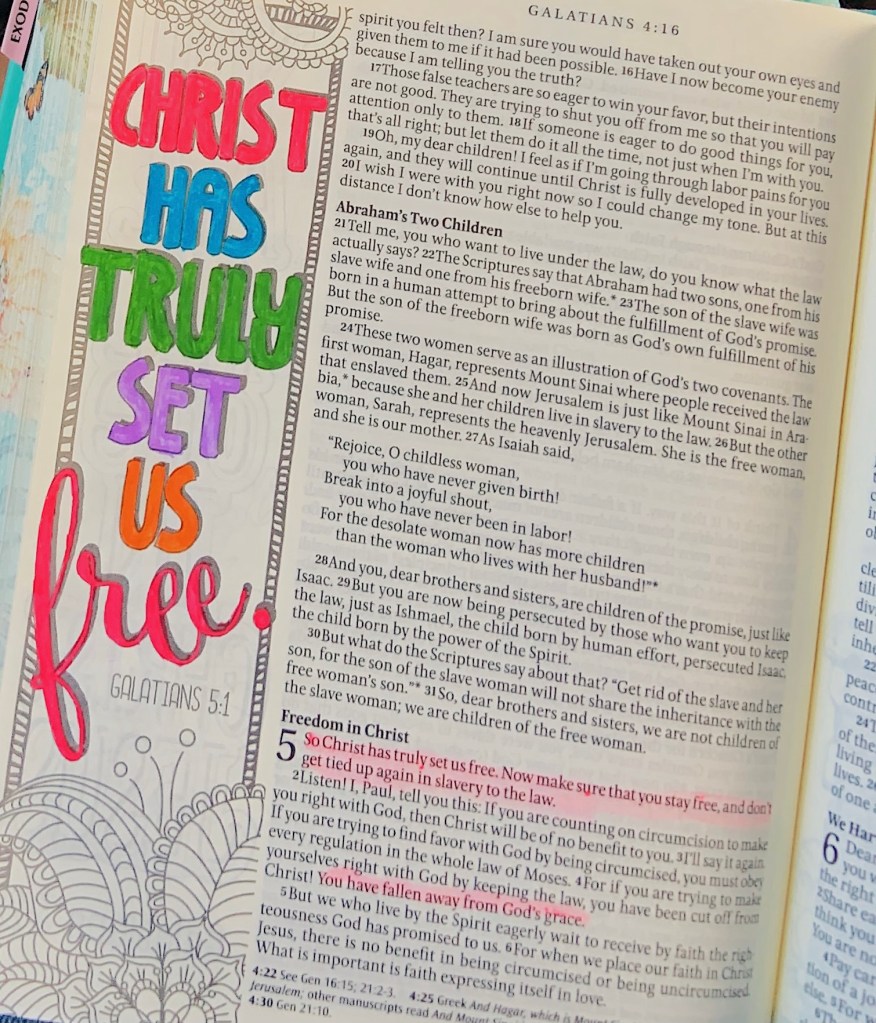 EXOD
CHRIST
HAS
TRULY
SET
US
free.
GALATIANS 5:1
GALATIANS 4:16
spirit you felt then? I am sure you would have taken out your own eyes and
given them to me if it had been possible. 16Have I now become your enemy
because I am telling you the truth?
17Those false teachers are so eager to win your favor, but their intentions
are not good. They are trying to shut you off from me so that you will pay
attention only to them. 18If someone is eager to do good things for you,
that's all right; but let them do it all the time, not just when I'm with you.
19Oh, my dear children! I feel as if I'm going through labor pains for you
again, and they will continue until Christ is fully developed in your lives.
20I wish I were with you right now so I could change my tone. But at this
distance I don't know how else to help you.
Abraham's Two Children
21Tell me, you who want to live under the law, do you know what the law
actually says? 22The Scriptures say that Abraham had two sons, one from his
slave wife and one from his freeborn wife.* 23The son of the slave wife was
born in a human attempt to bring about the fulfillment of God's promise.
But the son of the freeborn wife was born as God's own fulfillment of his
promise.
24These two women serve as an illustration of God's two covenants. The
first woman, Hagar, represents Mount Sinai where people received the law
that enslaved them. 25And now Jerusalem is just like Mount Sinai in Ara-
bia,* because she and her children live in slavery to the law. 26But the other
woman, Sarah, represents the heavenly Jerusalem. She is the free woman,
and she is our mother. 27As Isaiah said,
"Rejoice, O childless woman,
you who have never given birth!
Break into a joyful shout,
you who have never been in labor!
For the desolate woman now has more children
than the woman who lives with her husband!"*
28And you, dear brothers and sisters, are children of the promise, just like
Isaac. 29But you are now being persecuted by those who want you to keep
the law, just as Ishmael, the child born by human effort, persecuted Isaac,
the child born by the power of the Spirit.
30But what do the Scriptures say about that? "Get rid of the slave and her
son, for the son of the slave woman will not share the inheritance with the
free woman's son."* 31So, dear brothers and sisters, we are not children of
the slave woman; we are children of the free woman.
Freedom in Christ
5 So Christ has truly set us free. Now make sure that you stay free, and don't
get tied up again in slavery to the law.
2Listen! I, Paul, tell you this: If you are counting on circumcision to make
you right with God, then Christ will be of no benefit to you. 3I'll say it again.
If you are trying to find favor with God by being circumcised, you must obey
every regulation in the whole law of Moses. 4For if you are trying to make
yourselves right with God by keeping the law, you have been cut off from
Christ! You have fallen away from God's grace.
5But we who live by the Spirit eagerly wait to receive by faith the righ-
teousness God has promised to us. 6For when we place our faith in Christ
Jesus, there is no benefit in being circumcised or being uncircumcised.
What is important is faith expressing itself in love.
4:22 See Gen 16:15; 21:2-3. 4:25 Greek And Hagar, which is Mount
Jerusalem; other manuscripts read And Mount
4:30 Gen 21:10.
cle
tili
div
tell
inhe
22
peac
contr
24T
of the
living
lives.
of one a
We Har
6 Dear
you w
the right
2Share ea
think you
You are no
4Pay car
tion of a jo
else. 5F